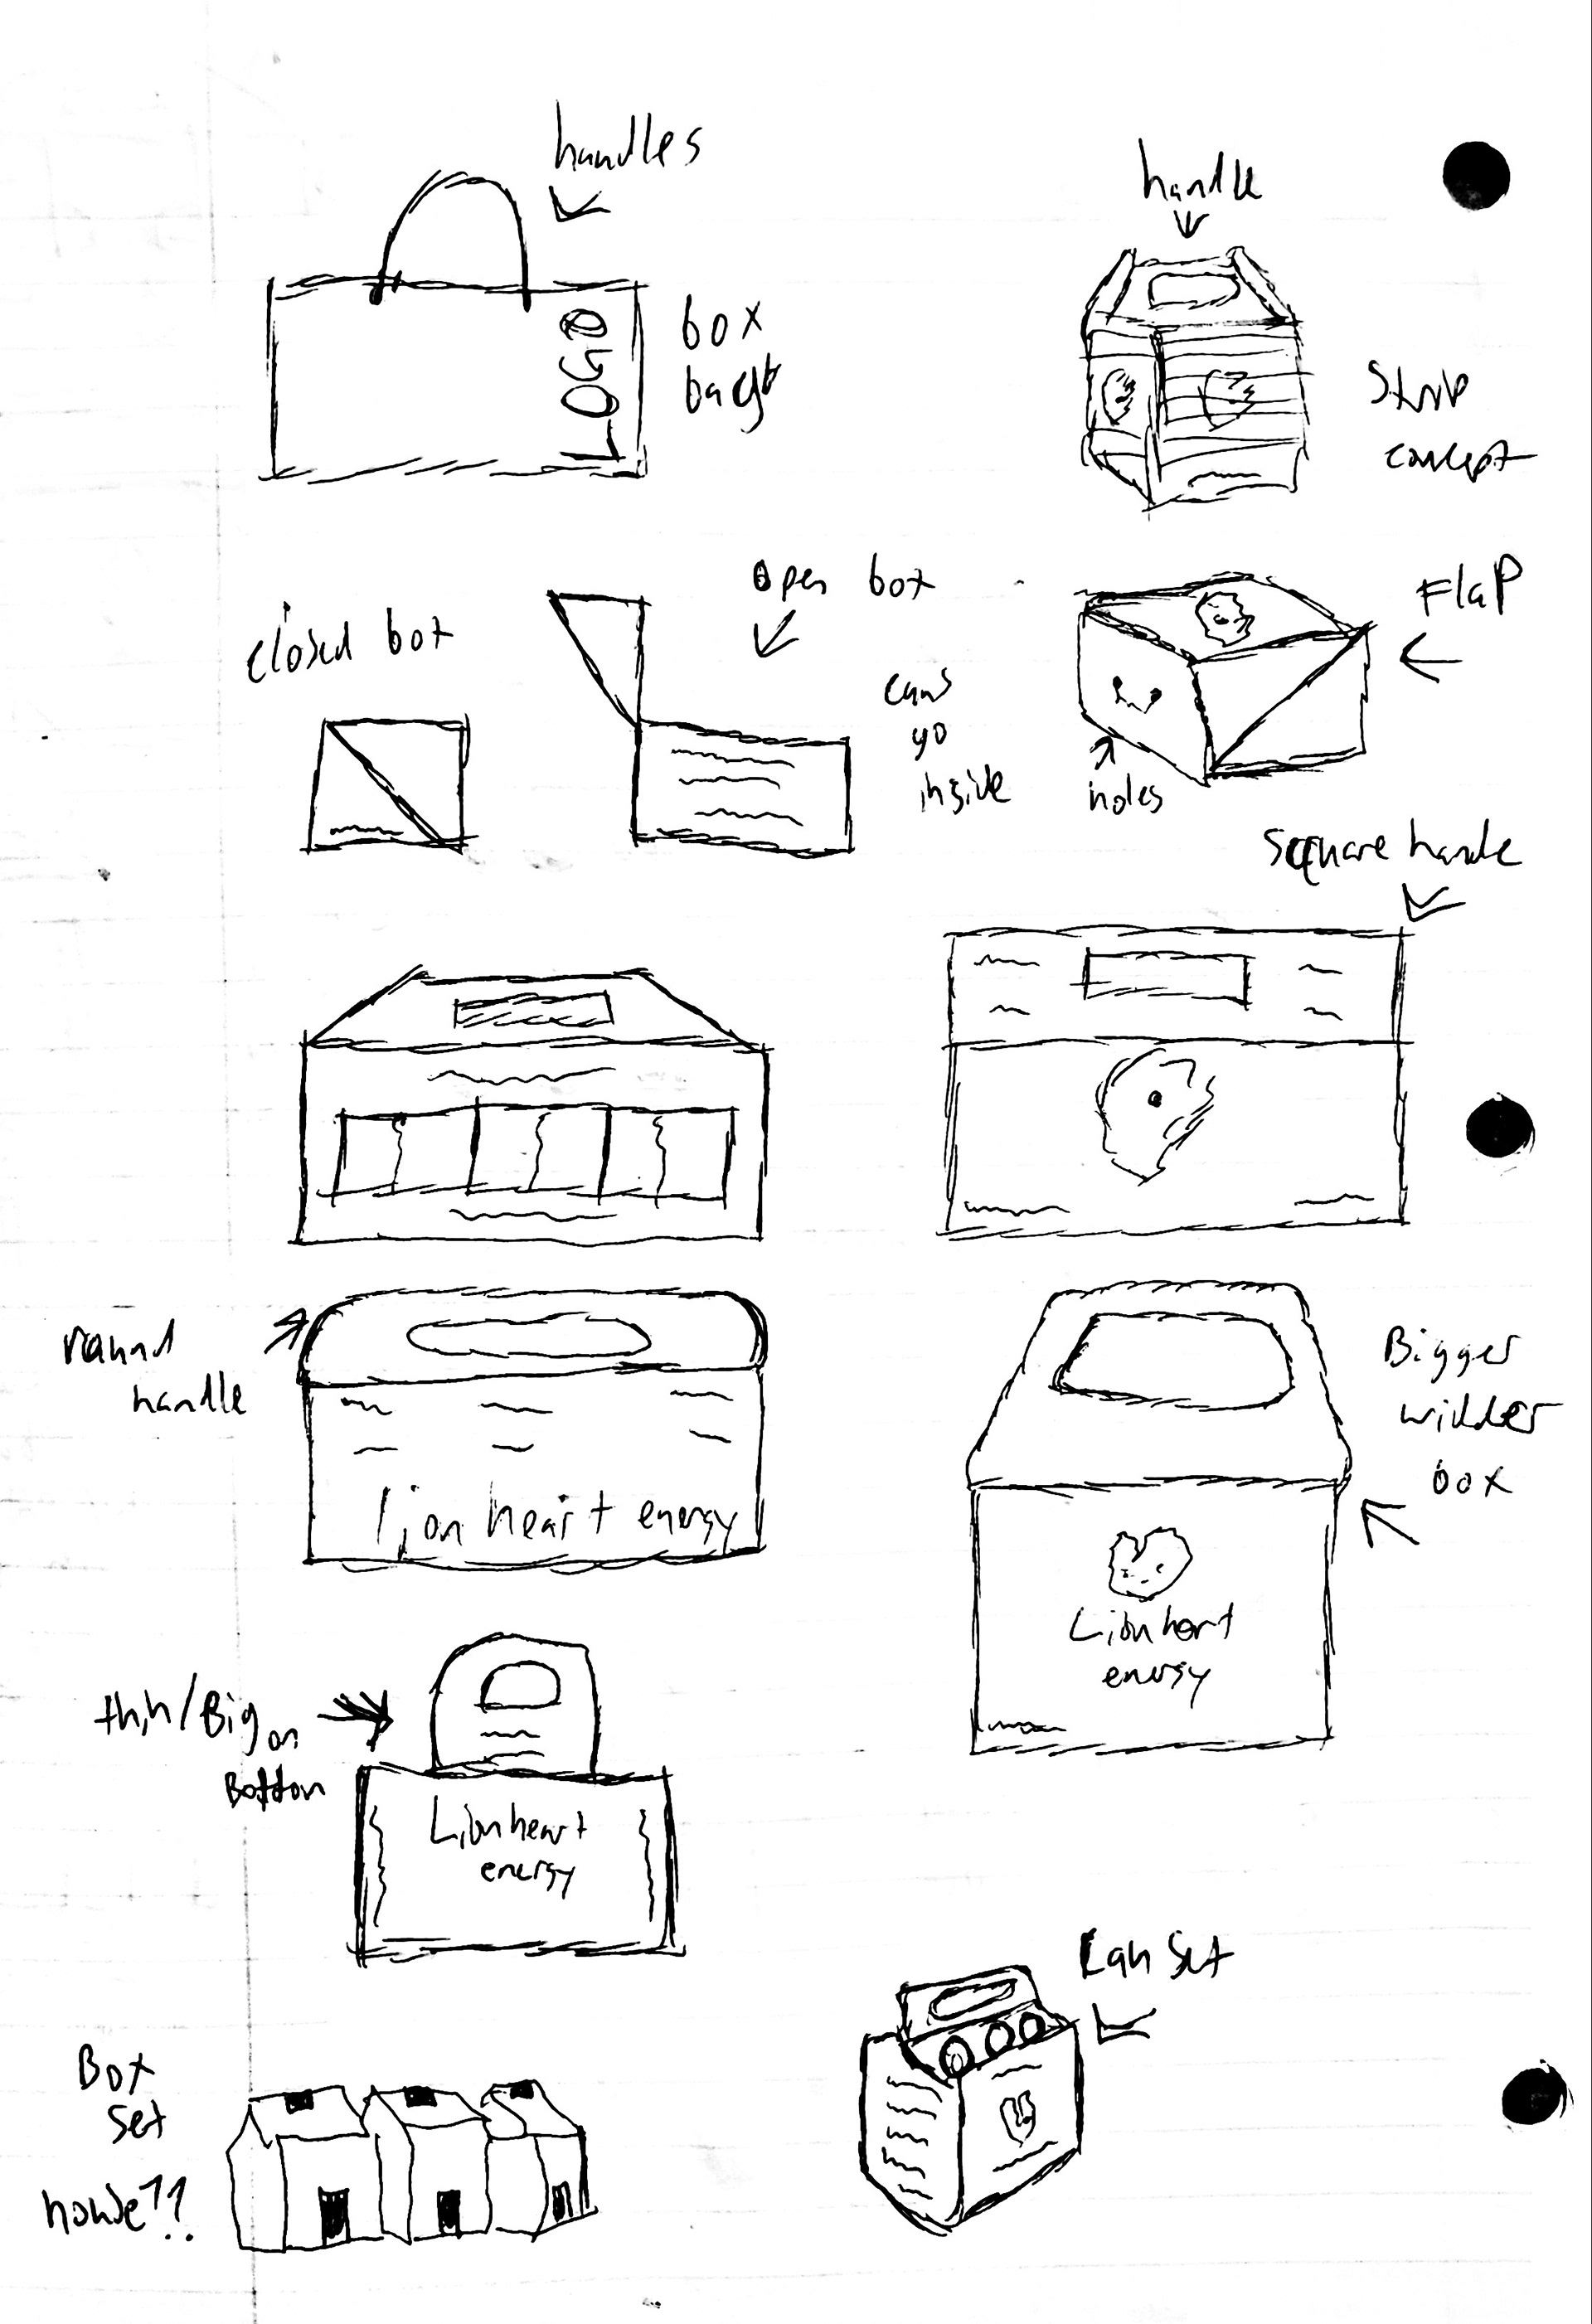 handles
handle
LOGO
box
bag
concept
Open box
Flap
closed box
cans
go
inside
holes
square handle
round
handle
lion heart energy
Bigger
widder
box
Lionhart
energy
thin/Big on
Bottom
Lionheart
energy
Can Set
Box
Set
house??